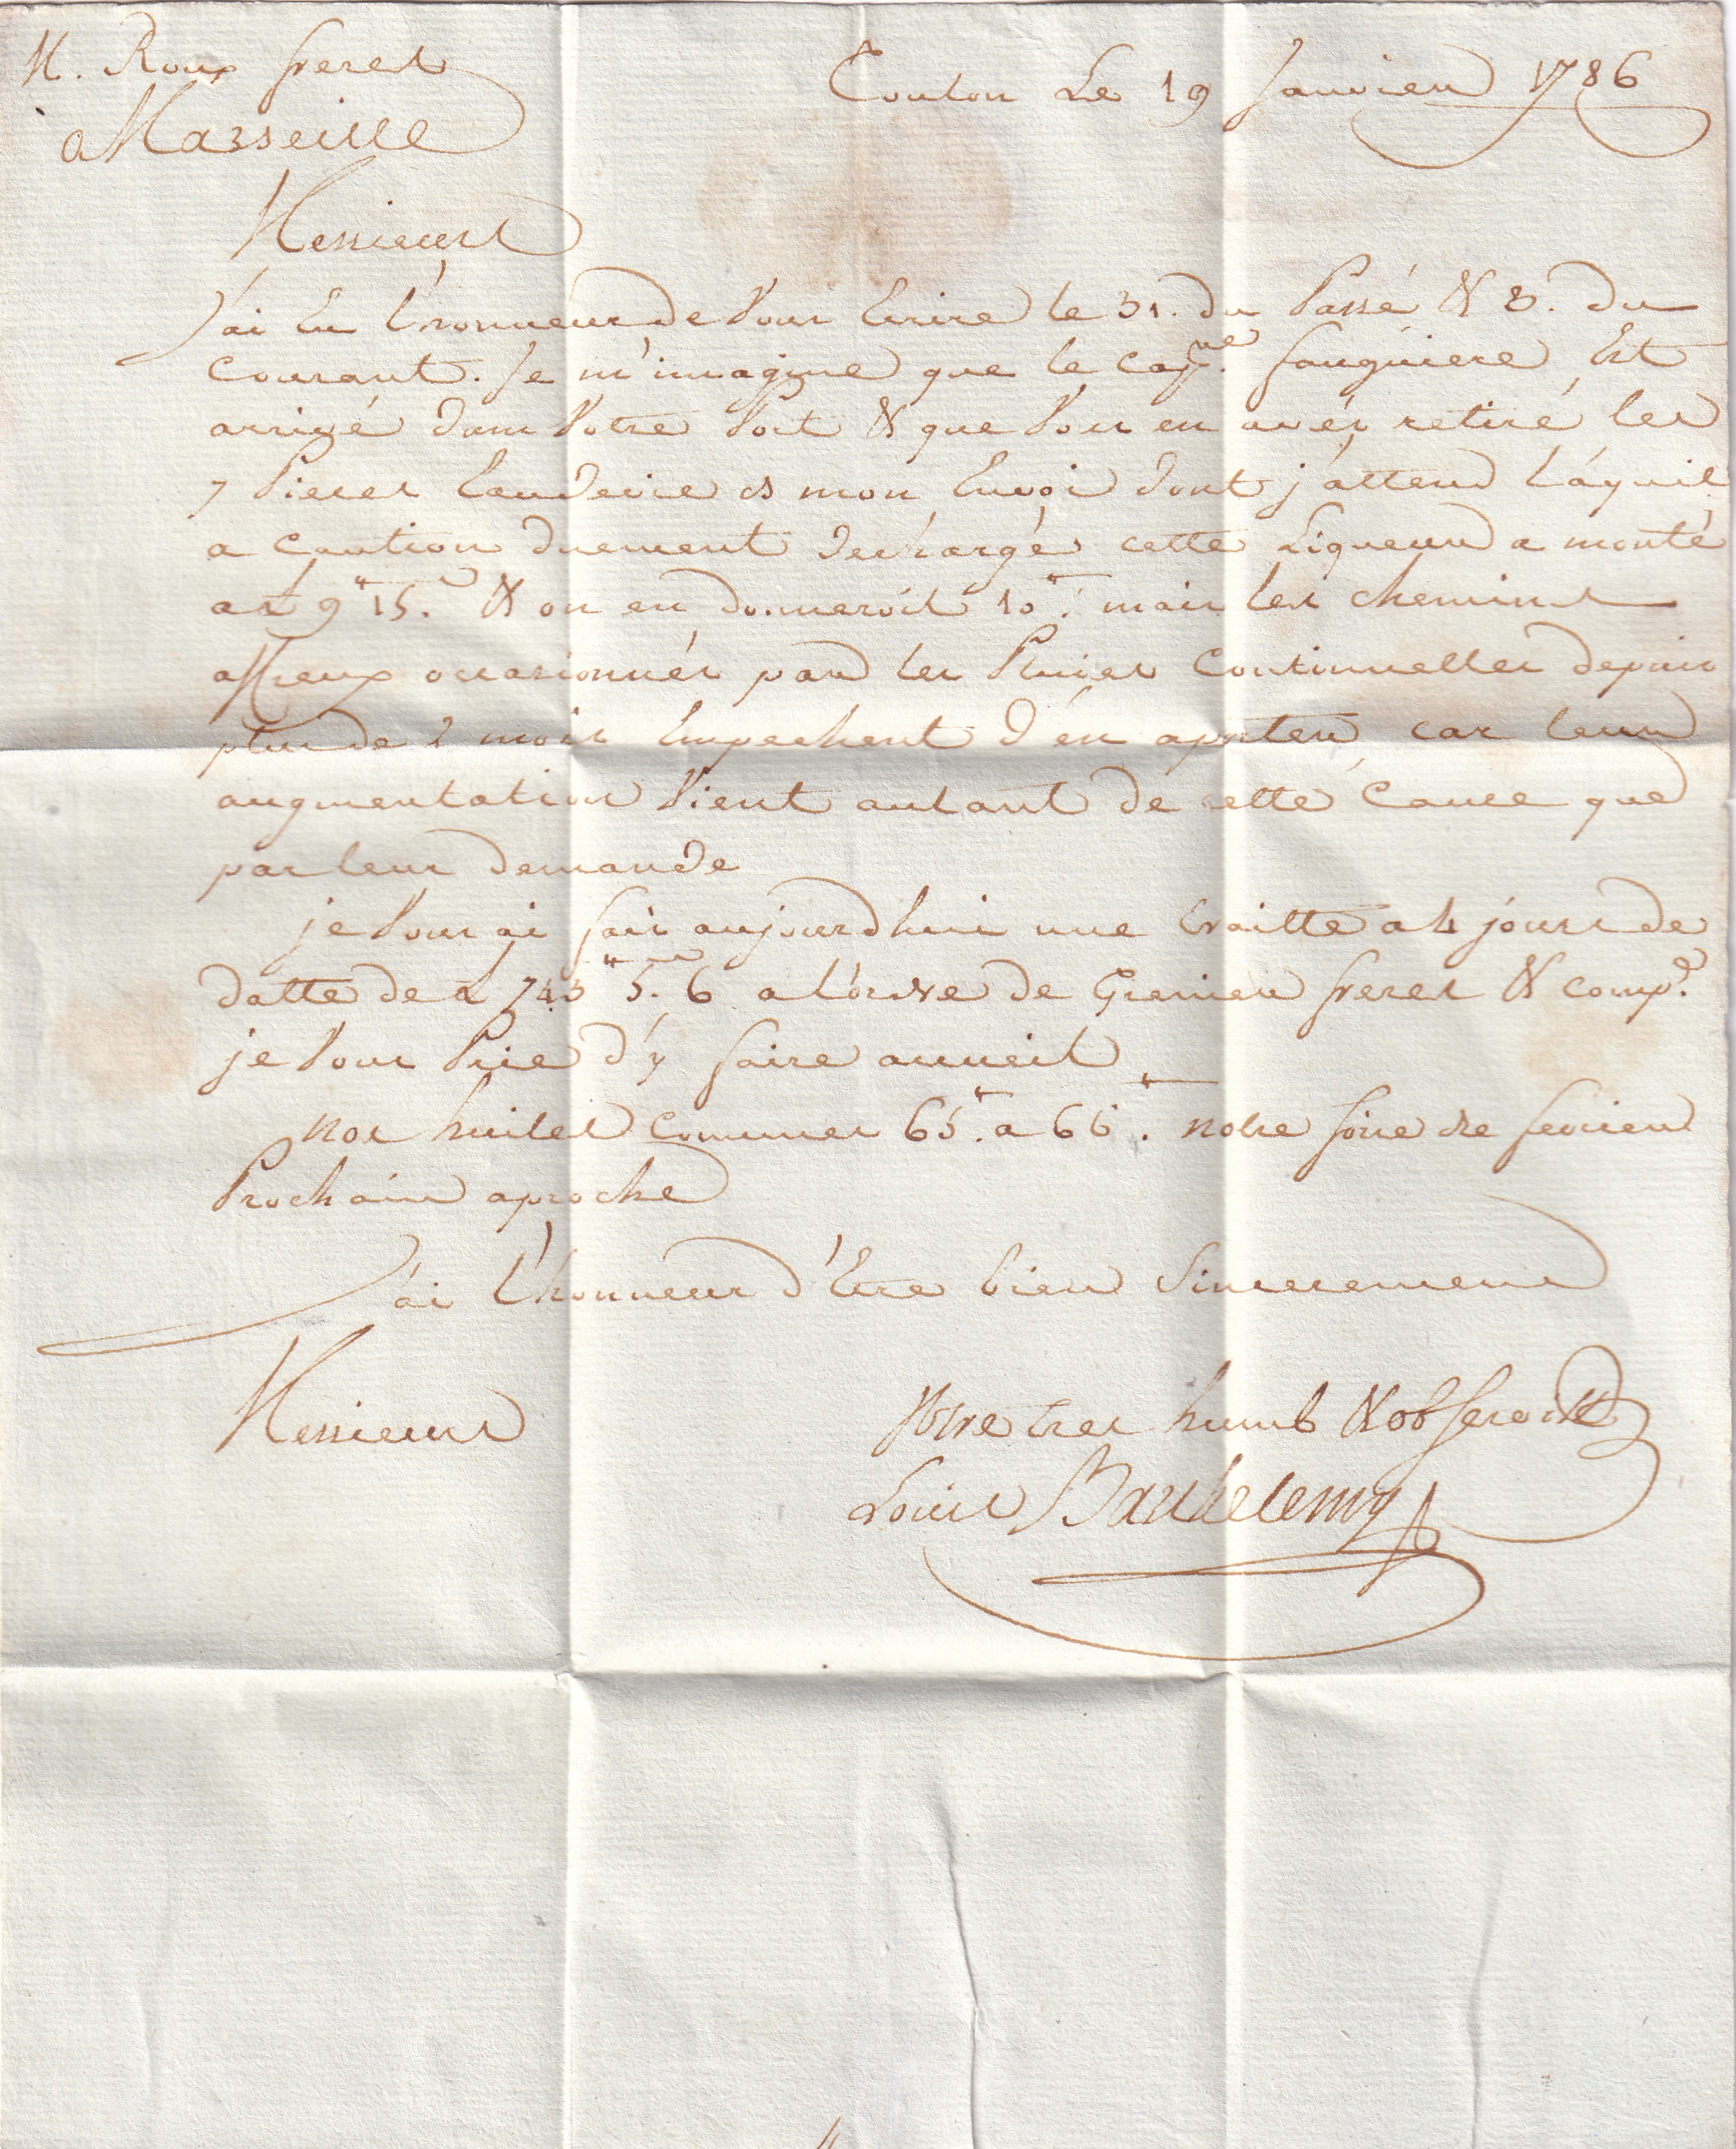 M. Roux freres
a Marseille
Toulon Le 19 Janvier 1786
Messieurs
J'ai Eu l'honneur de Vous Ecrire le 31. du Passé & 8. du
Courant. Je m'imagine que le cap.ne fauguiere Est
arrivé dans Votre Port & que Vous en avés retiré les
7 Pieces Eaudevie mon Envoi dont j'attend L'aquit
a caution duement dechargé cette Liqueur a monté
a £ 9" 15. & on en donneroit 10". mais les chemins
affreux occasionnés par les Pluies Continuelles depuis
plus de 2 mois Empechent d'en aporter car leur
augmentation Vient autant de cette Cause que
par leur demande
je Vous ai fait aujourdhui une traitte a 4 jours de
datte de £ 743" 5. 6 a l'ordre de Grenier freres & comp.e
je Vous Prie d'y faire accueil
nos huiles communes 65". a 66". notre foire de fevrier
Prochain aproche
J'ai l'honneur d'Etre bien Sincerement
Messieurs
Votre tres humb & ob serviteur
Louis Barthelemy